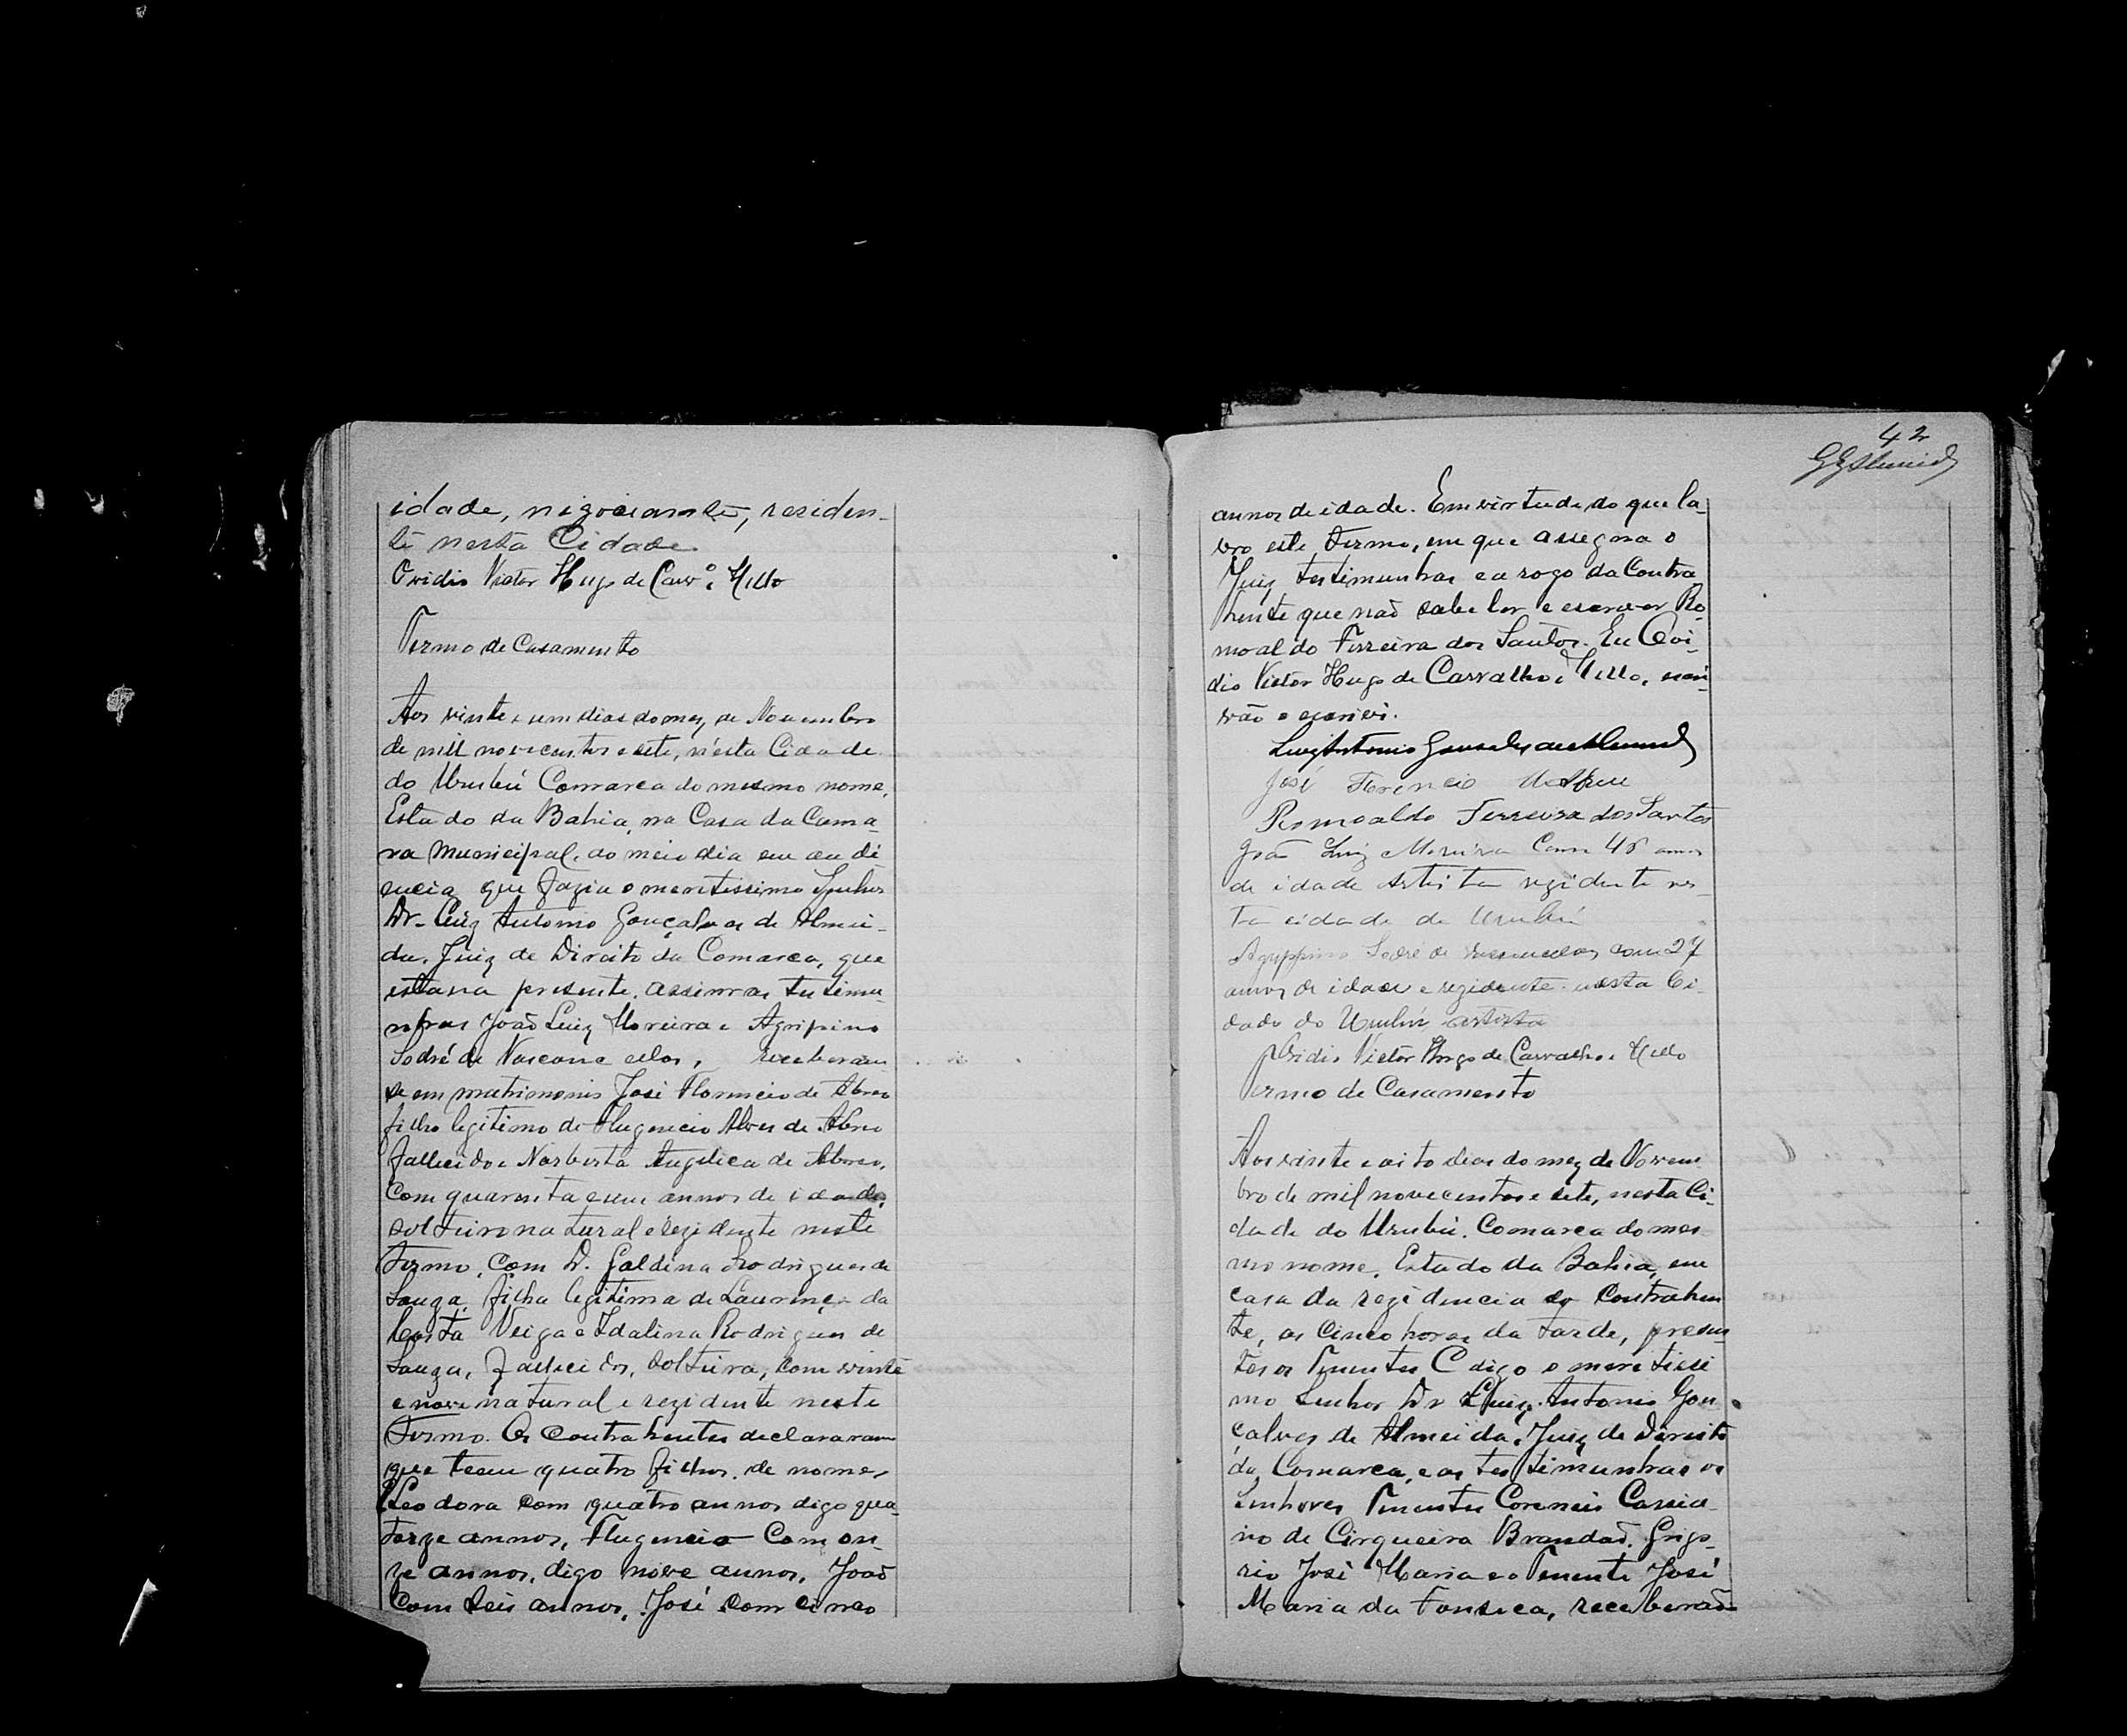 idade, nigociante, residen-
te nesta Cidade
Ovidio Victor Hugo de Carvº e Mello
Termo de Casamento
Aos vinte e um dias do mez de Novembro
de mil novecentos e sete, n'esta Cidade
do Urubú Comarca do mesmo nome,
Estado da Bahia, na Casa da Cama-
ra Municipal, ao meio dia em audi
encia que fazia o meritissimo Senhor
Dr. Luiz Antonio Gonçalves de Almei-
da, Juiz de Direito da Comarca, que
estava presente, assim as testimu-
nhas João Luiz Moreira e Agripino
Sodré de Vasconcellos, receberam
se em matrimonio José Florencio de Abreu
filho legitimo de Flugencio Alves de Abreu
fallecido e Norberta Angelica de Abreu,
Com quarenta e um annos de idade,
solteiro natural e rezidente neste
Termo, Com D. Galdina Rodrigues de
Souza, filha legitima de Lourenço da
Costa Veiga e Idalina Rodrigues de
Souza, fallecidos, solteira, com vinte
e nove natural e rezidente neste
Termo. Os Contrahentes declararam
que teem quatro filhos de nomes
Leodora com quatro annos digo qua-
torze annos, Flugencio Com on-
ze annos, digo nove annos, João
Com seis annos, José com cinco
42
annos de idade. Em virtude do que la-
vro este Termo, em que assegna o
Juiz testimunhas e a rogo da Contra
hente que não sabe ler e escrever Ro-
moaldo Ferreira dos Santos. Eu Ovi-
dio Victor Hugo de Carvalho e Mello, escri-
vão o escrivi.
Luiz Antonio Gonçalves de Almeida
José Florencio de Abreu
Romoaldo Ferreira dos Santos
João Luiz Moreira Com 48 annos
de idade Artista rezidente nes-
ta cidade de Urubú
Agrippino Sodré de Vasconcellos com 27
annos de idade e rezidente nesta Ci-
dade do Urubú artista
Ovidio Victor Hugo de Carvalho e Mello
Termo de Casamento
Aos vinte e oito dias do mez de Novem
bro de mil novecentos e sete, nesta Ci-
dade do Urubú, Comarca do mes-
mo nome, Estado da Bahia, em
casa da rezidencia do Contrahen
te, as Cinco horas da tarde, presen-
tes os Tenentes C digo o meretissi
mo Senhor Dr Luiz Antonio Gon-
çalves de Almeida, Juiz de Direito
da Comarca, e as testimunhas os
Senhores Tenentes Coroneis Cassia-
no de Cirqueira Brandão, Grigo-
rio José Maria e o Tenente José
Maria da Fonseca, receberão